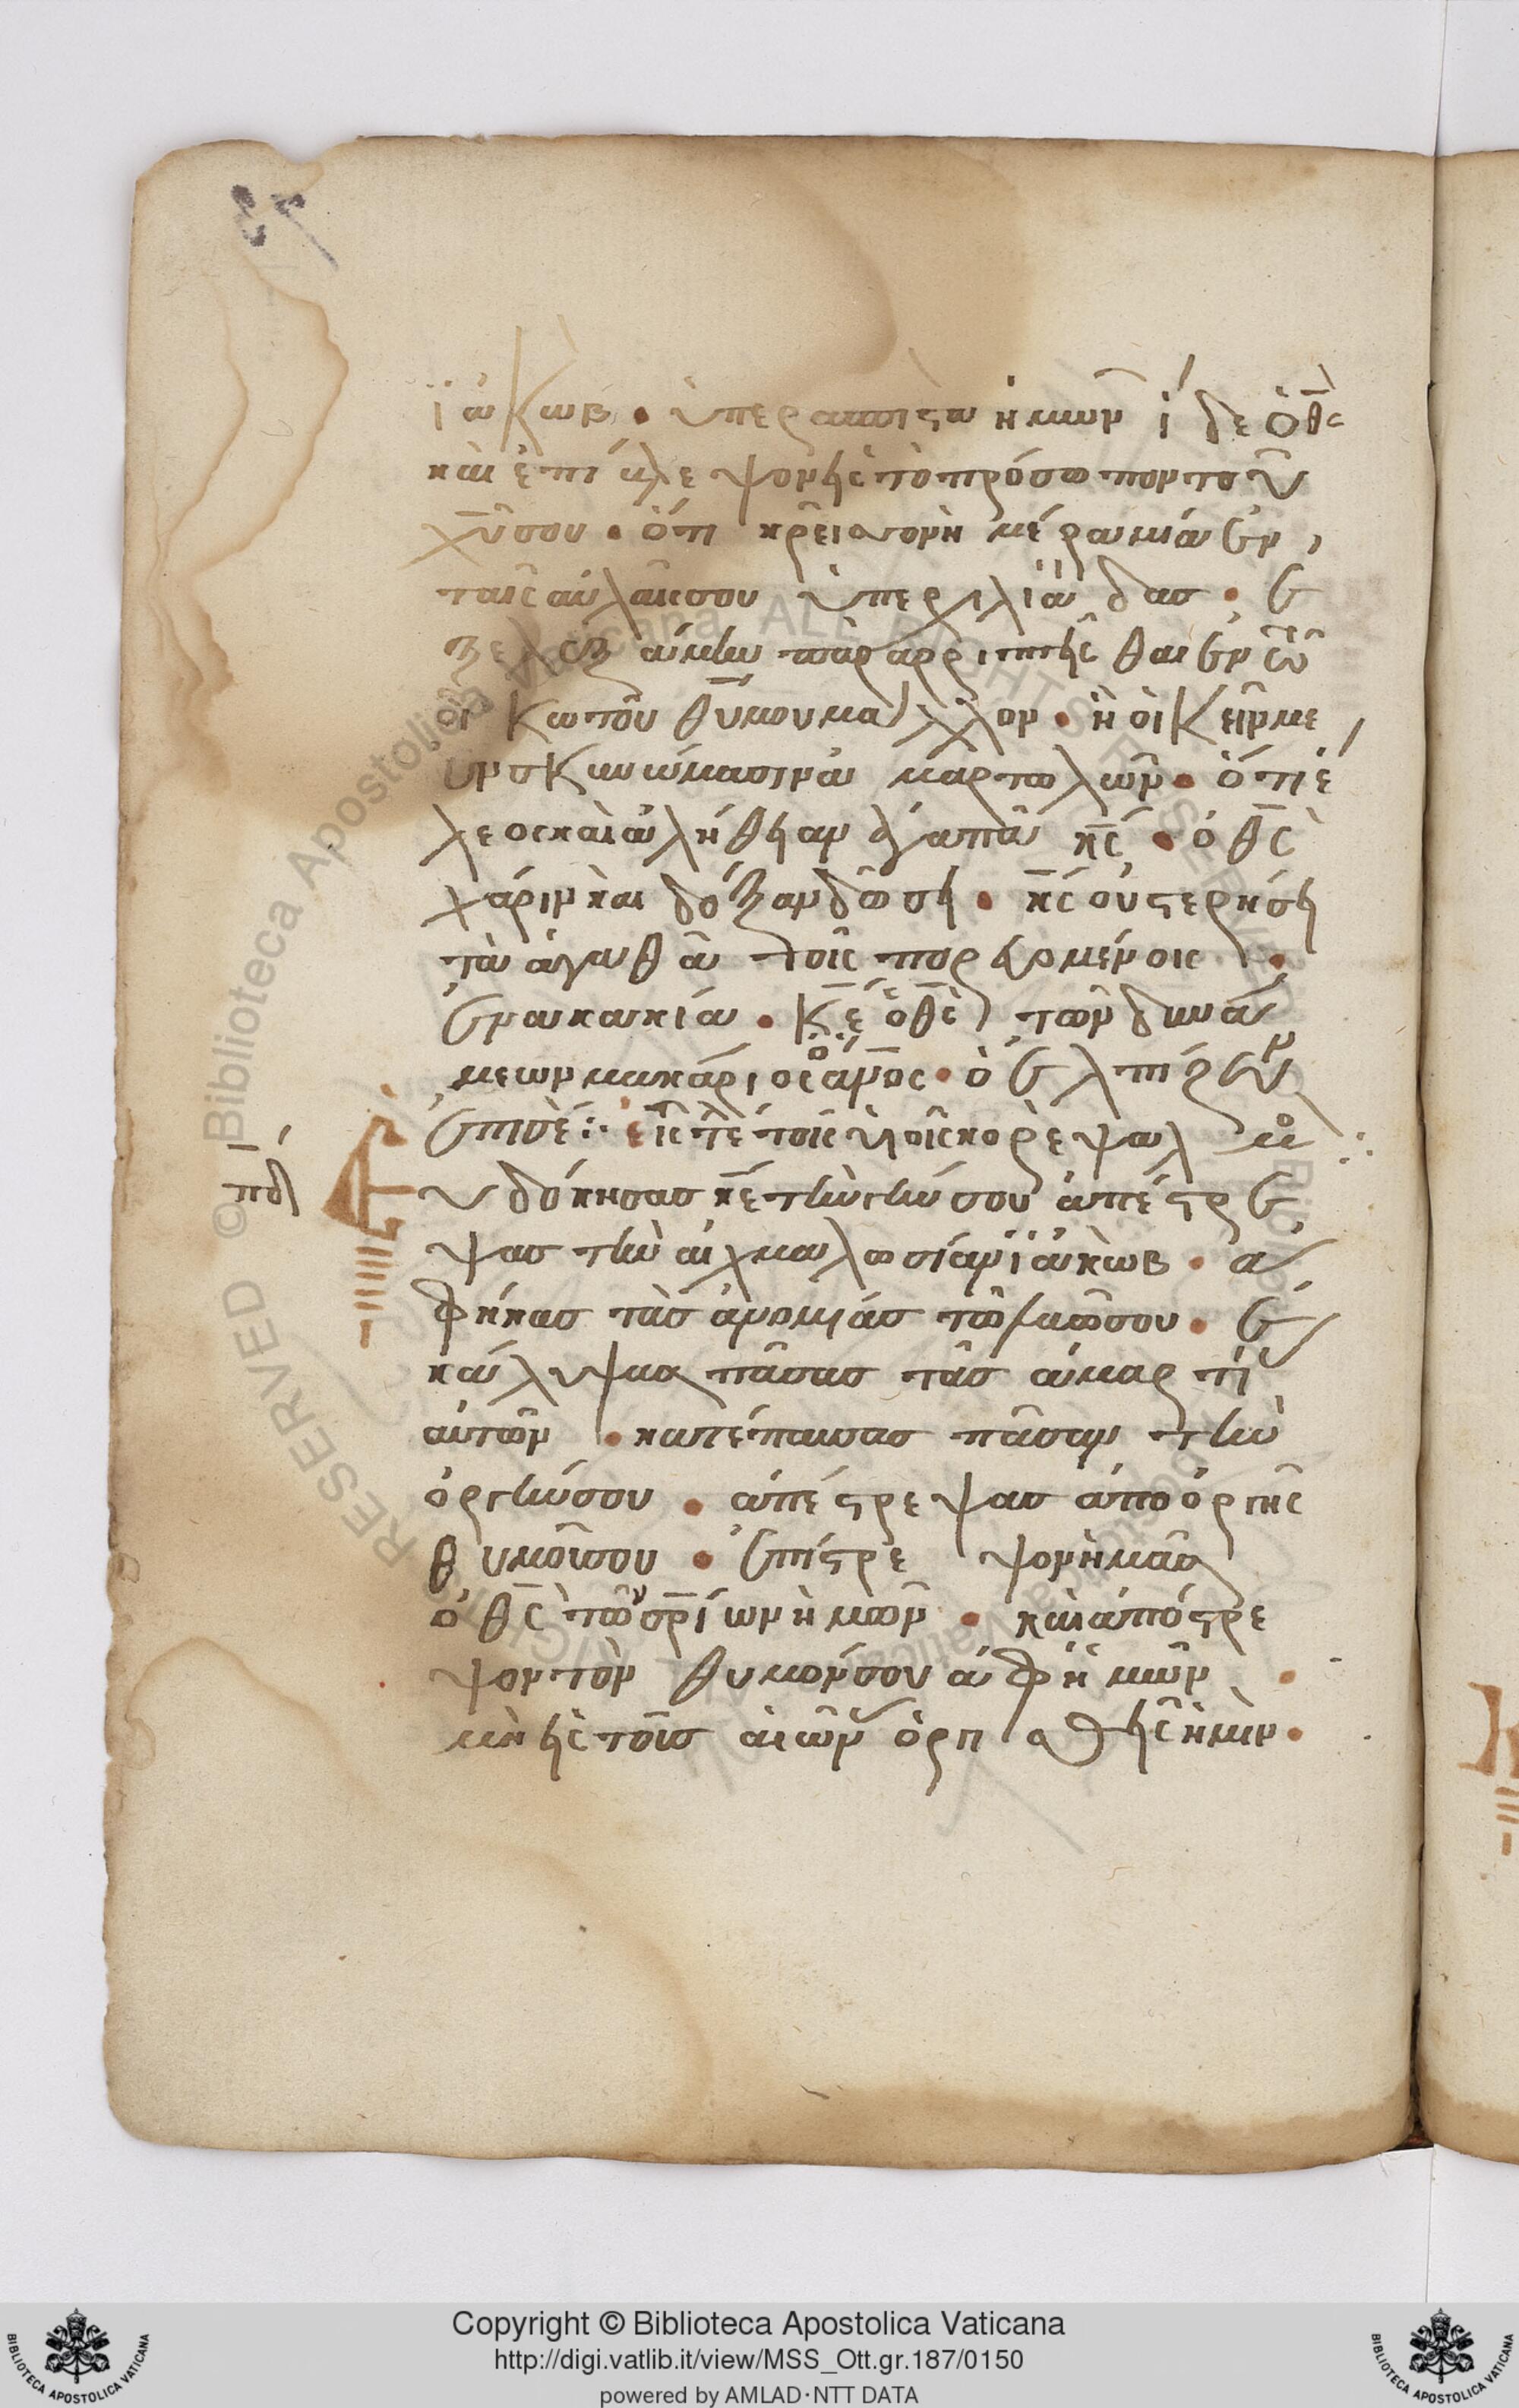 ϊακώβ · ὑπερασπιστὰ ἡμῶν ἴδε ὁ θ̅ς
καὶ ἐπίβλεψον εἰς τὸ πρόσωπον τοῦ
χ̅υ̅ σου · ὅτι κρείσσον ἡμέρα μία ἐν
ταῖς αὐλαῖς σου ὑπὲρ χιλιάδας · ἐ
ξελεξάμην παραρριπτεῖσθαι ἐν τῶ
οἴκω τοῦ θ̅υ̅ μου μᾶλλον · ἢ οἰκεῖν με
ἐν σκηνώμασιν ἁμαρτωλῶν · ὅτι ἔ
λεος καὶ ἀλήθειαν ἀγαπᾶ κ̅ς · ὁ θ̅ς
χάριν καὶ δόξαν δώσει · κ̅ς οὐ στερήσει
τὰ ἀγαθὰ τοῖς πορευομένοις
ἐν ἀκακία · κ̅ε ὁ θ̅ς τῶν δυνά
μεων μακάριος ἄν̅ο̅ς · ὁ ἐλπίζων
ἐπὶ σέ :· εἰς τὸ τέ τοῖς υἱοῖς κορὲ ψαλμο :·
πδ
Εὐδόκησας κ̅ε τὴν γῆν σου ἀπέστρε
ψας τὴν αἰχμαλωσίαν ϊακώβ · ἀ
φῆκας τὰς ἀνομίας τῶ λαῶ σου · ἐ
κάλυψας πάσας τὰς ἁμαρτί
αὐτῶν · κατέπαυσας πᾶσαν τὴν
ὀργήν σου · ἀπέστρεψας ἀπὸ ὀργῆς
θυμοῦ σου · ἐπίστρεψον ἡμᾶς
ὁ θ̅ς τῶν σ̅ρ̅ίων ἡμῶν · καὶ ἀπόστρε
ψον τὸν θυμόν σου ἀφ' ἡμῶν ·
μὴ εἰς τοὺς αἰῶν ὀργισθεῖς ἡμῖν ·
© Biblioteca Apostolica Vaticana ALL RIGHTS RESERVED
Copyright © Biblioteca Apostolica Vaticana
http://digi.vatlib.it/view/MSS_Ott.gr.187/0150
powered by AMLAD·NTT DATA
BIBLIOTECA APOSTOLICA VATICANA
BIBLIOTECA APOSTOLICA VATICANA